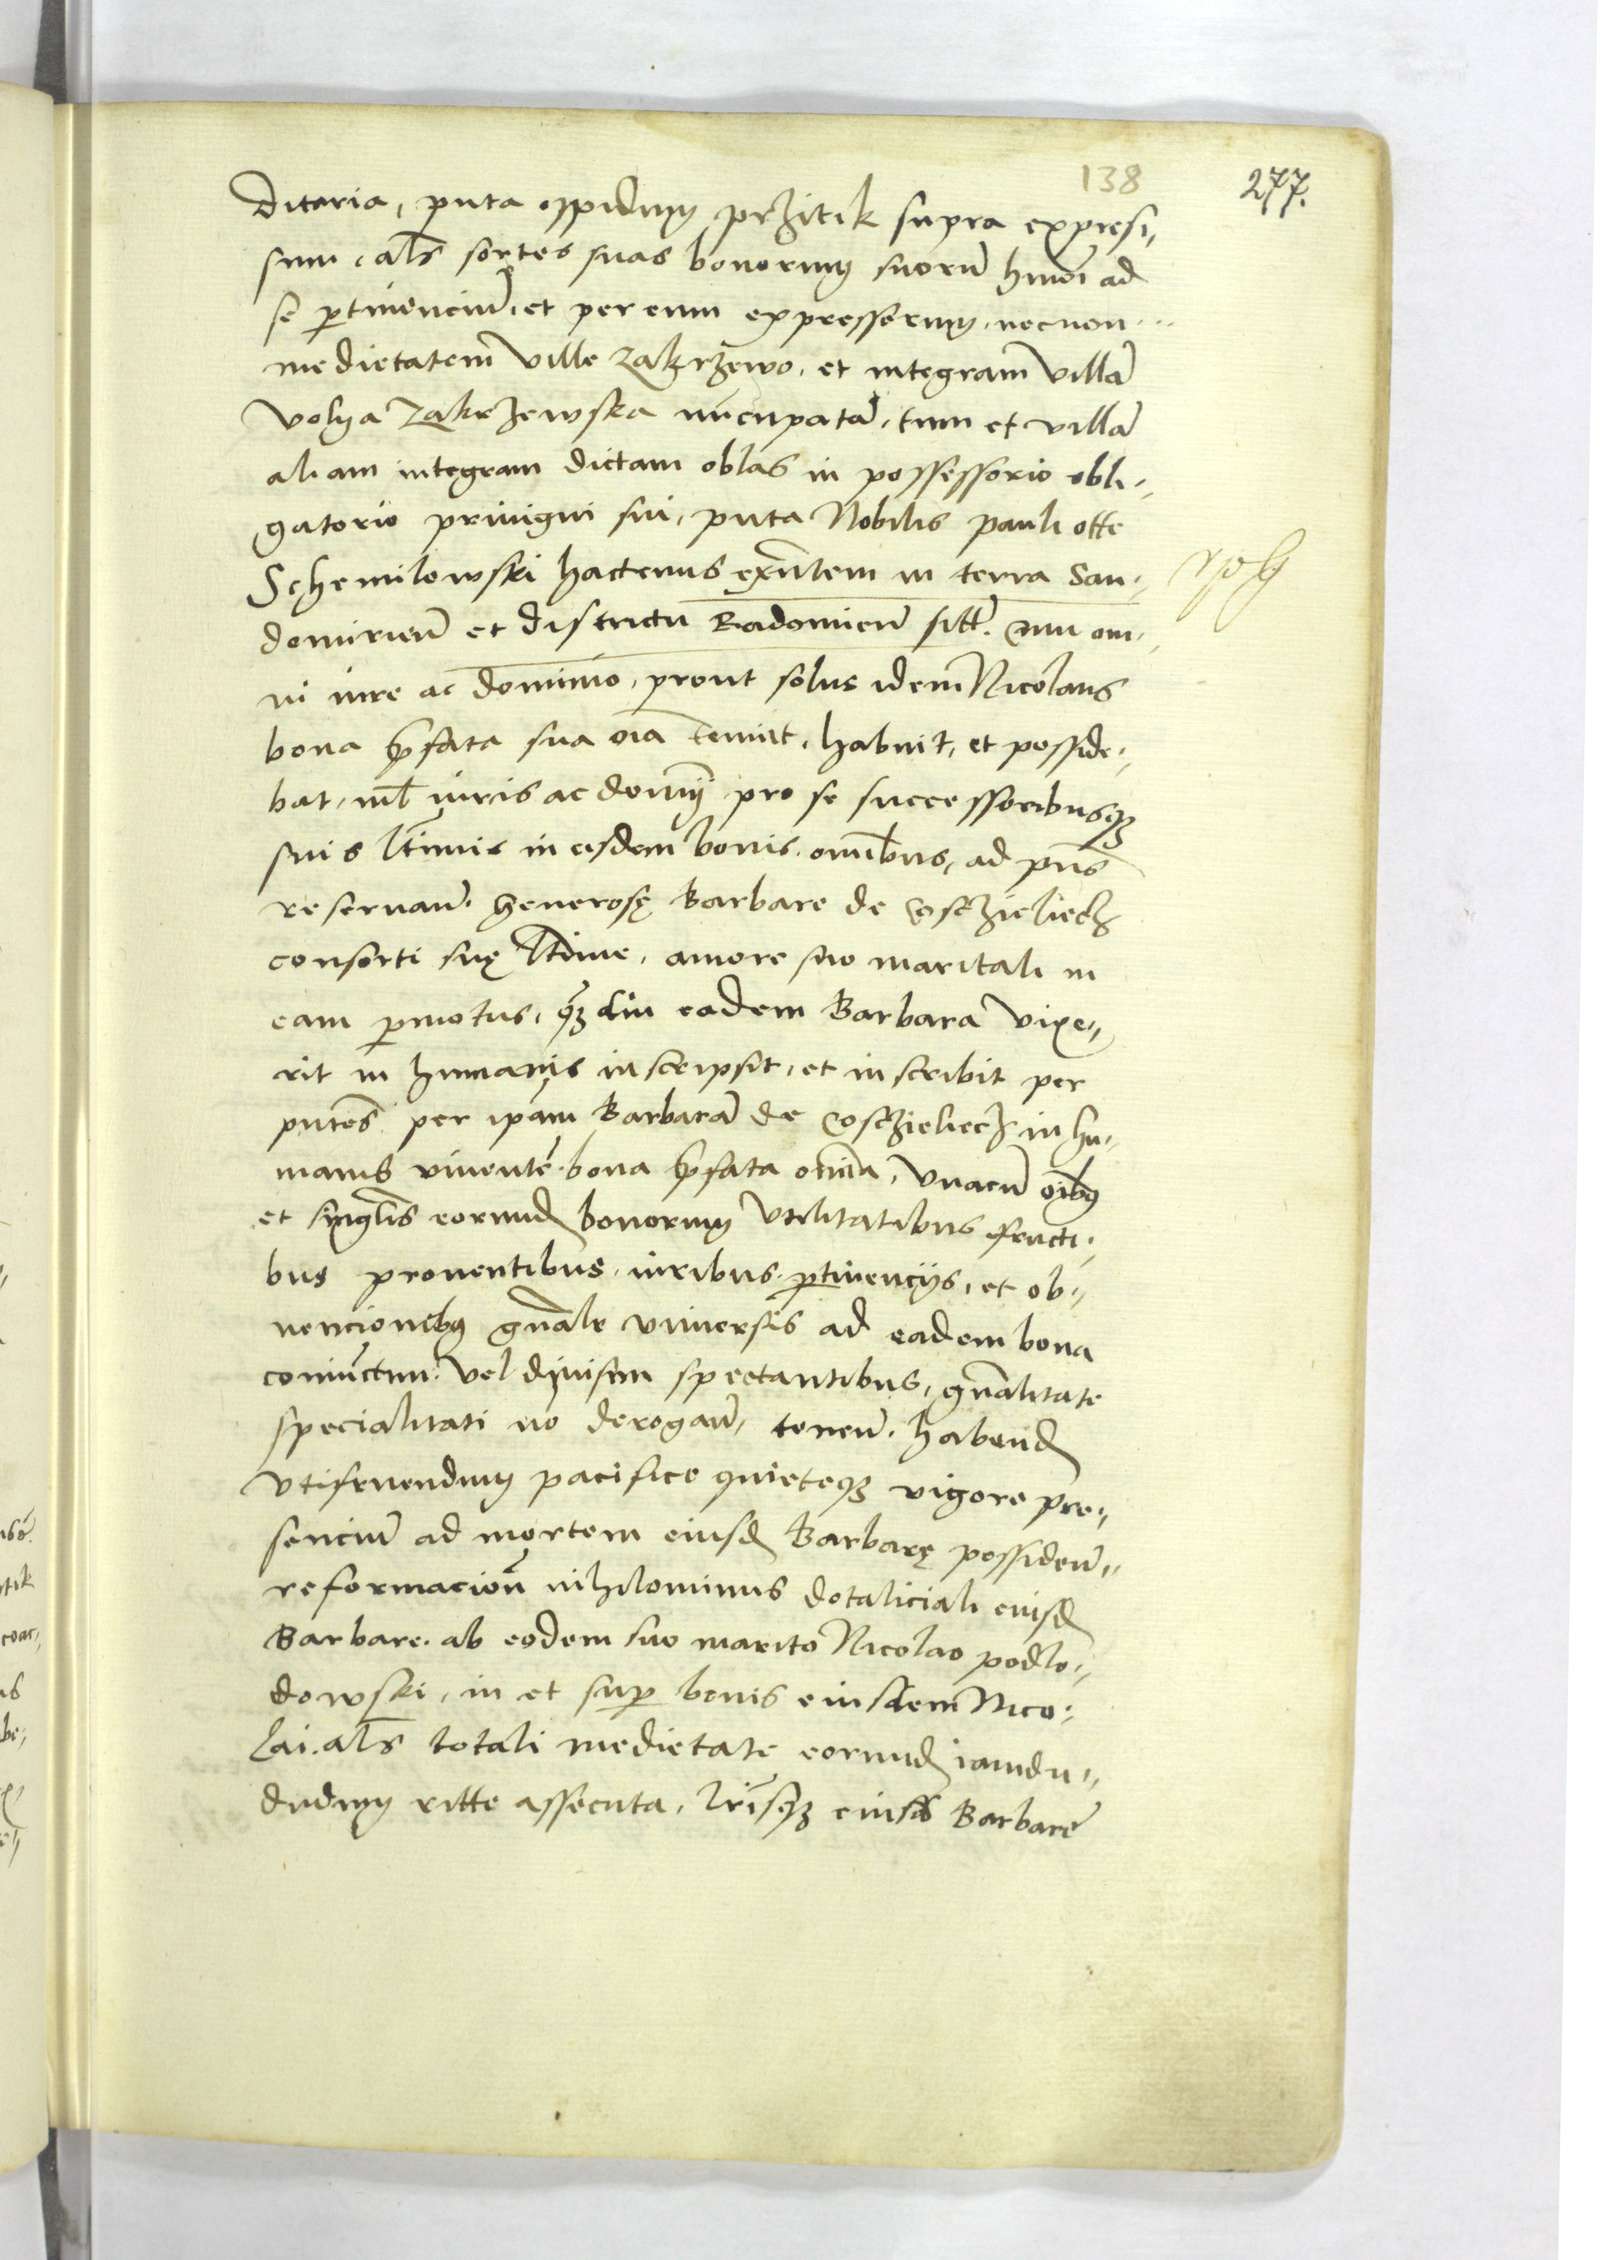 138
277.
ditaria, puta oppidum przitik supra expres,
sum, als sortes suas bonorum suorū hmoi ad
se ptinenciū, et per eum expressorum, necnon
medietatem ville zakrzewo, et integram villā
volya zakrzewska nūcupatā, tum et villā
aliam integram dictam oblas in possessorio obli„
gatorio privigni sui, puta Nobilis pauli otte
Schemilowski hactenus exn̄tem in terra San„
domirien̄ et districtu Radomien̄ sitt. cum om„
ni iure ac dominio, prout solus idem Nicolaus
bona p̄fata sua oīa tenuit, habuit, et posside„
bat, nil iuris ac dominij pro se successoribusq3
suis ltimis in eisdem bonis omībus, ad pn̄s
reservan̄. generosę Barbare de Coszieliecz
consorti suę ltime, amore suo maritali in
eam pmotus, q3 diu eadem Barbara vixe„
rit in humanis inscripsit, et inscribit per
pn̄tes per ipam Barbarā de Coszieliecz in hu„
manis viventē bona p̄fata omnia, unacū oib9
et singlis eorund bonorum utilitatibus fructi„
bus proventibus, iuribus ptinencijs, et ob„
vencionib9 gn̄ale universis ad eadem bona
coniūctim vel divisim spectantibus, gn̄alitate
specialitati nō derogan̄, tenen̄. habend
utifruendum pacifice quieteq3 vigore pre„
senciū ad mortem eiusd Barbarę possiden̄„
reformacion̄ nihilominus dotaliciali eiusd
Barbare ab eodem suo marito Nicolao podlo„
dowski, in et sup bonis eiusdem Nico„
lai als totali medietate eorund iamdu„
dudum ritte assecuta, lrisq3 eiusd Barbare